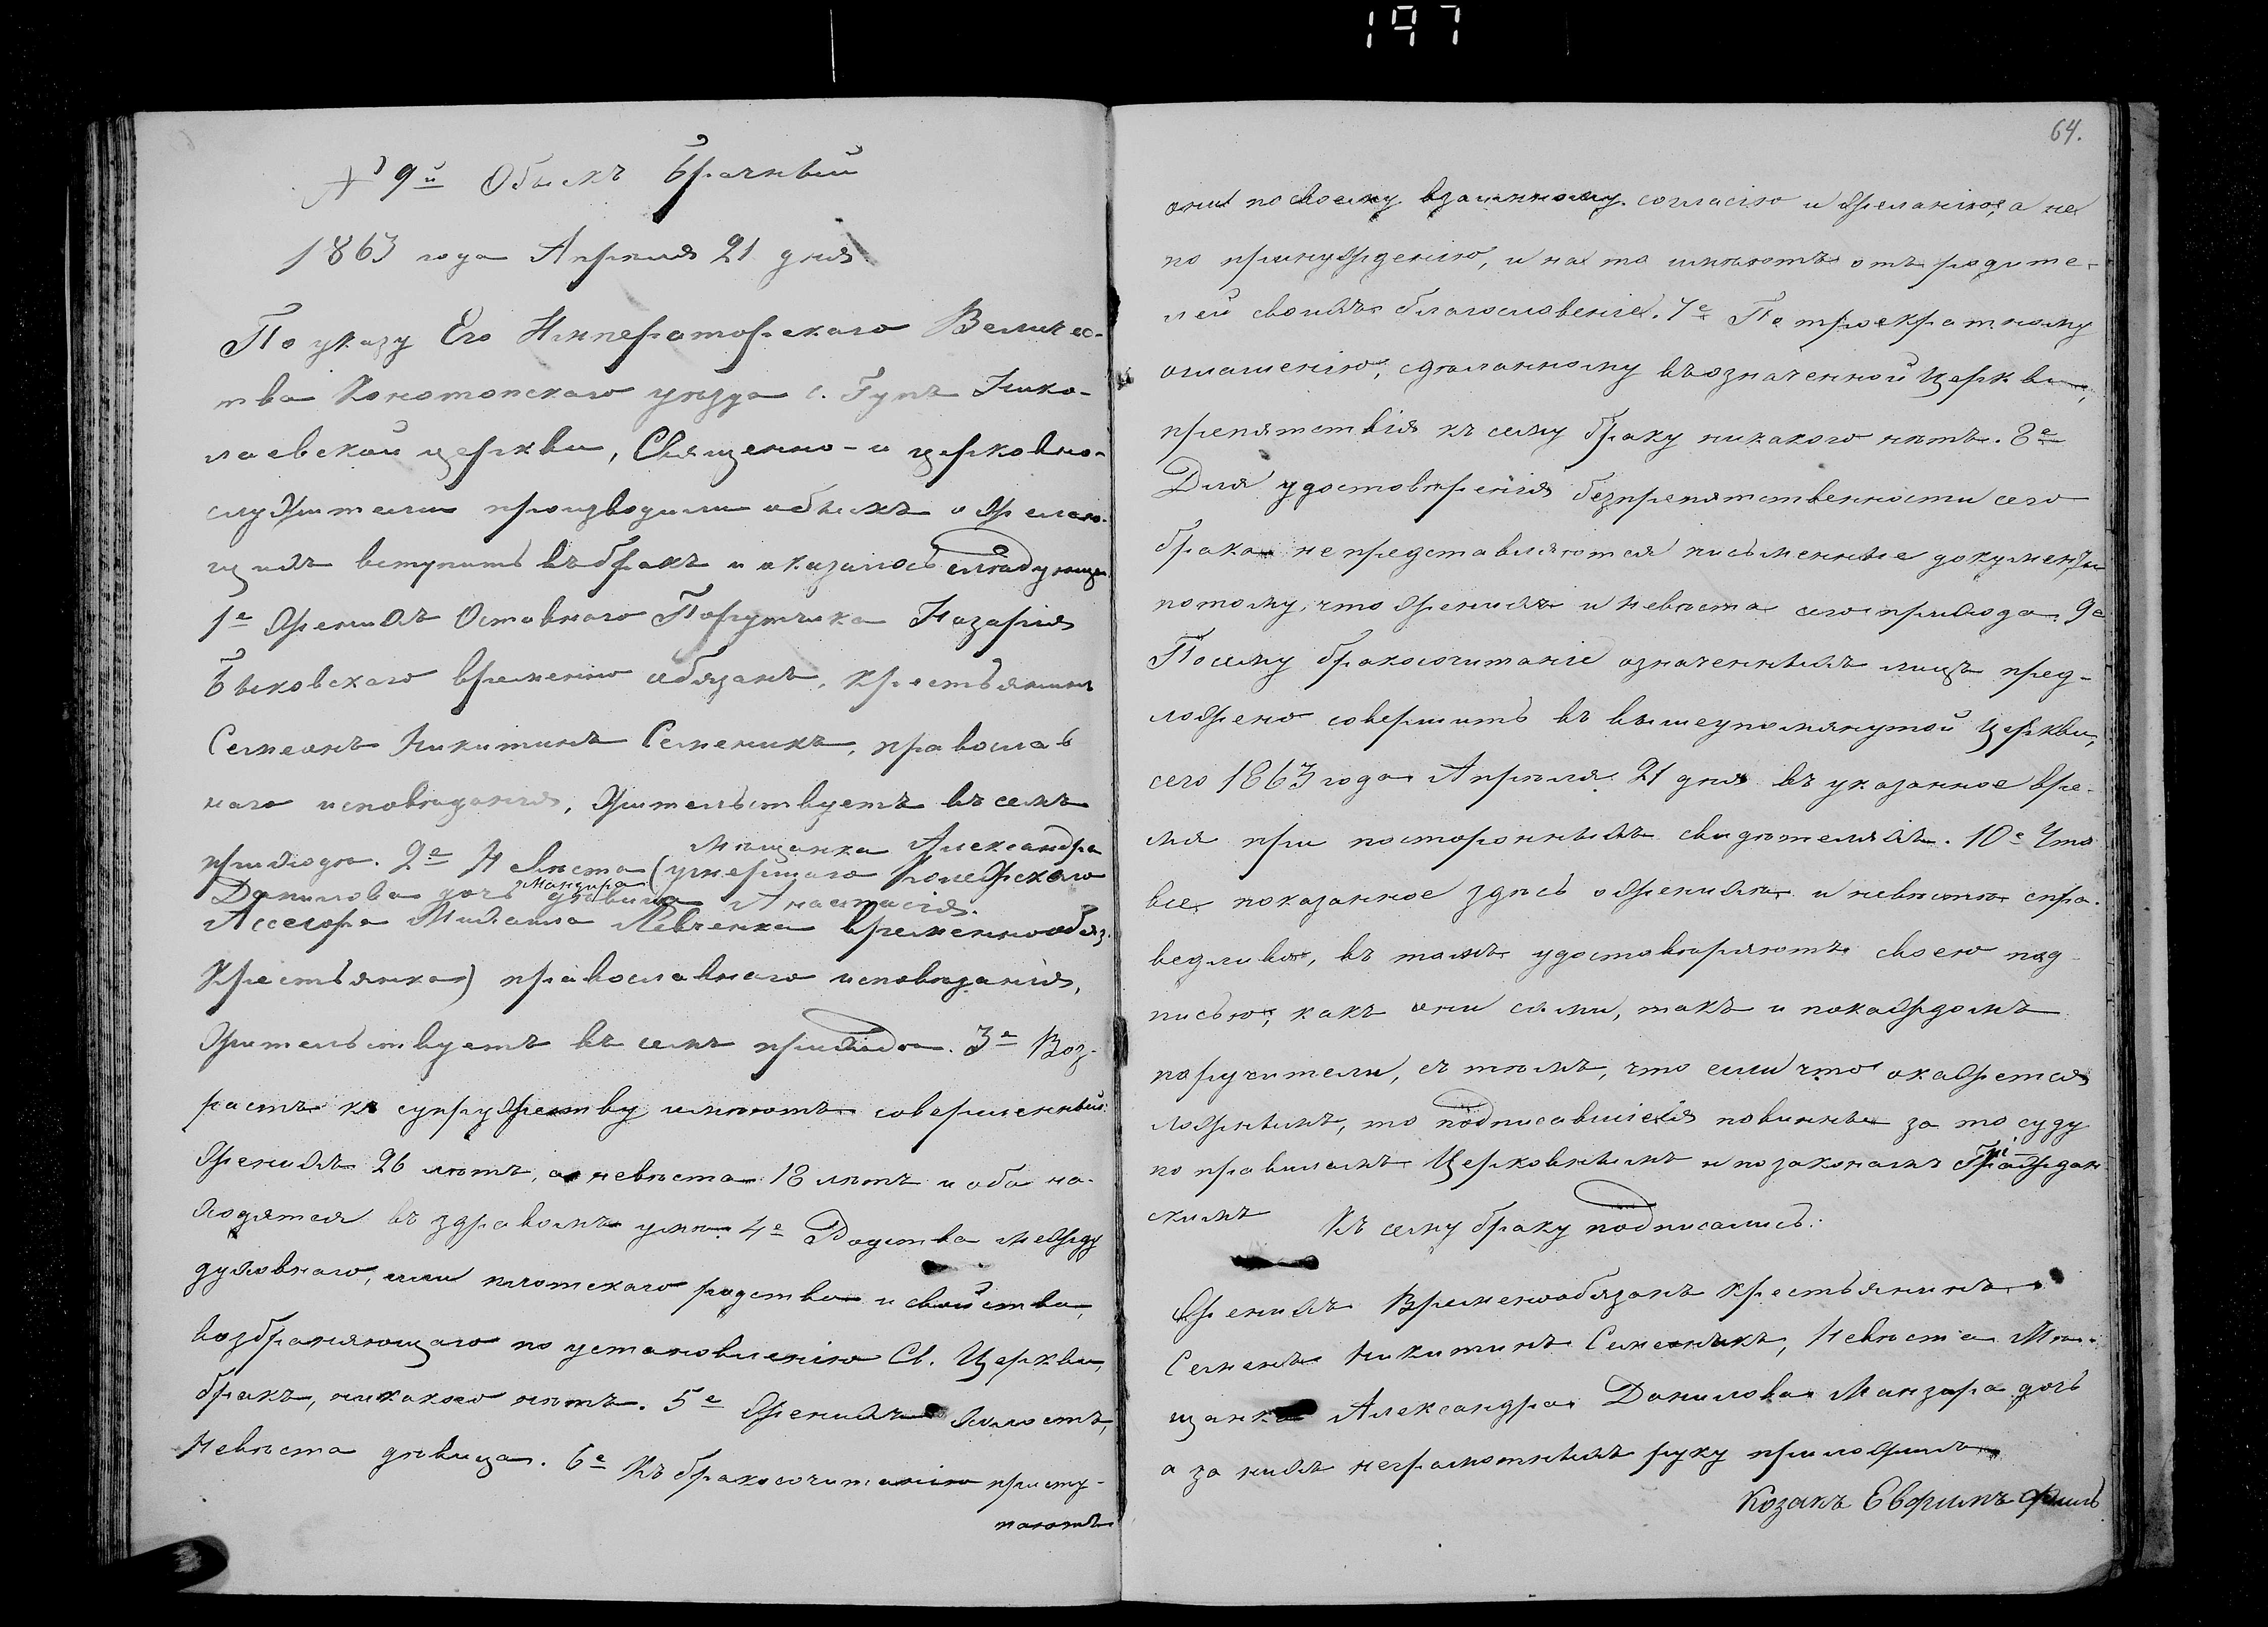 197
№ 9й Обыскъ Брачный
1863 года Апреля 21 дня
По указу Его Императорскаго Величес-
тва Конотопскаго уѣзда с. Гутъ Нико-
лаевской церкви, Священно- и церковно-
служители производили обыскъ о желаю-
щихъ вступить въ бракъ и оказалось следующее
1е Женихъ Отставнаго Поручика Назарія
Быковскаго временно обязанъ, крестьянинъ
Семеонъ Никитинъ Семеникъ, православ
наго исповѣданія, жительствуетъ въ семъ
приходѣ. 2е Невѣста мѣщанка Александра
(умершаго
Данилова дочь Манзура
Ассесора Михаила Левченка временнообяз.
Крестьянка) православнаго исповѣданія,
жительствуетъ въ семъ приходѣ. 3е Воз-
растъ къ супружеству имѣютъ совершенный:
женихъ 26 лѣтъ, а невѣста 18 лѣтъ и оба на-
ходятся въ здравомъ умѣ. 4е Родства между
духовнаго, или плотскаго родства и свойства,
возбраняющаго по установленію Св. Церкви,
бракъ, никакого нѣтъ. 5е Женихъ холостъ,
Невѣста дѣвица. 6е Къ бракосочитанію присту-
паютъ
64.
они по своему взаимному согласію и желанію, а не
по принужденію, и на то имѣютъ отъ родите-
лей своихъ благословеніе. 7е По троекратному
оглашенію, сдѣланному въ означенной Церкви,
препятствія къ сему браку никакого нѣтъ. 8е
Для удостовѣренія безпрепятственности сего
брака не представляются письменные документы
потому, что женихъ и невѣста сего прихода. 9е
Посему бракосочитаніе означенныхъ лицъ пред-
ложено совершить въ вышеупомянутой Церкви,
сего 1863 года Апрѣля 21 дня въ указанное вре-
мя при постороннихъ свидѣтеляхъ. 10е Что
все показанное здѣсь о женихѣ и невѣстѣ спра-
ведливо, въ томъ удостовѣряютъ своею под-
писью, какъ они сами, такъ и по каждомъ
поручители, съ тѣмъ, что если что окажется
ложнымъ, то подписавшіеся повинны за то суду
по правиламъ Церковнымъ и по законамъ Граждан
скимъ Къ сему браку подписались:
Женихъ Временнообязанъ крестьянинъ
Семенъ Никитинъ Семеникъ, Невѣста Мѣ-
щанка Александра Данилова Манзура дочь
а за нихъ неграмотныхъ руку приложилъ
Козакъ Евфимъ